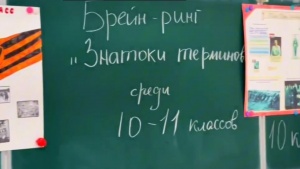 Брейн-ринг
„Знатоки терминов
среди
10-11 классов
10 к